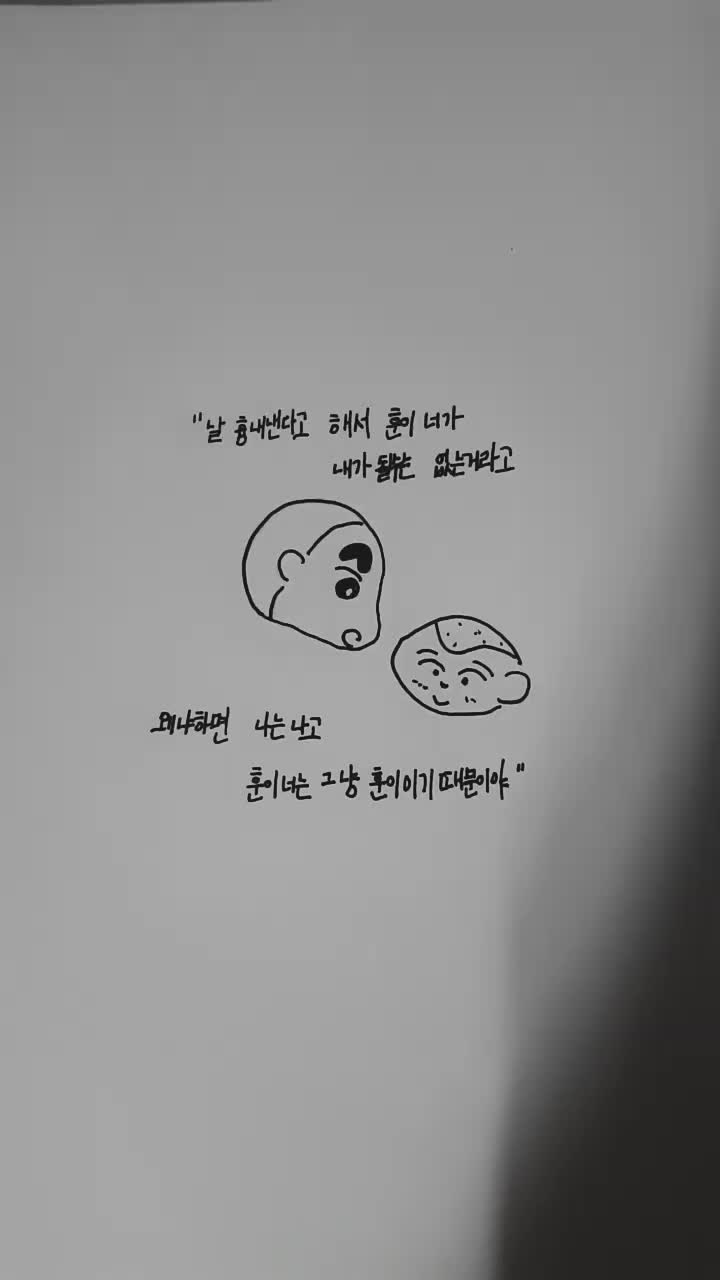 "날 흉내낸다고 해서 훈이 너가
내가 될수는 없는거라고
왜냐하면 나는 나고
훈이 너는 그냥 훈이이기 때문이야"